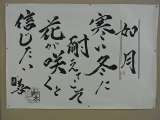 如月
寒い冬に
耐えてこそ
花が咲くと
信じたい